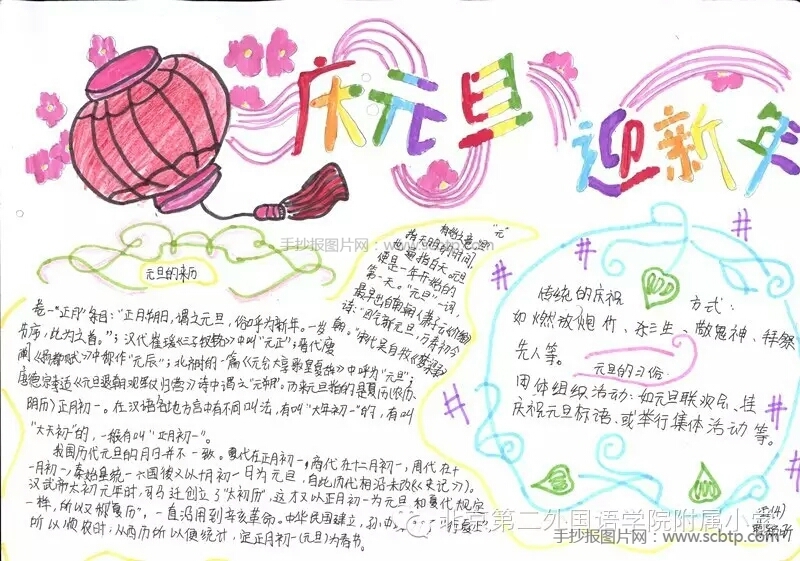 庆元旦
迎新年
手抄报图片网：www.scbtp.com
元旦的来历
卷一"正月"条目："正月朔日，谓之元旦，俗呼为新年。一岁
节序，此为之首。"；汉代崔瑗《三子钗铭》中叫"元正"；晋代庾
中称作"元辰"；北
中呼为"元旦"；
诗中谓之"元朔"。历来元旦指的是夏历(农历、
阴历)正月初一。在汉语各地方言中有不同叫法，有叫"大年初一"的，有叫
"大天初一"的，一般有叫"正月初一"。
我国历代元旦的月日并不一致。夏代在正月初一，商代在十二月初一，周代在十
一月初一，秦始皇统一六国後又以十月初一日为元旦，自此历代相沿未改(《史记》)。
汉武帝太初元年时，司马迁创立了"太初历"，这才又以正月初一为元旦
和夏代规定
一样，所以又称"夏历"，一直沿用到辛亥革命。中华民国建立，孙中
行夏正
所以顺农时，从西历所以便统计，定正月初一(元旦)为春节。
"元"
是一年开始的
第一天。"元旦"一词，
最早出自南朝
诗："四气新元旦，万寿初今
朝。"宋代吴自牧《梦粱录》
传统的庆祝
方式：
如燃放炮竹、
敬鬼神、拜祭
先人等。
元旦的习俗
团体组织活动：如元旦联欢会、挂
庆祝元旦标语、或举行集体活动等。
北京第二外国语学院附属小学
手抄报图片网
www.scbtp.com
(4)